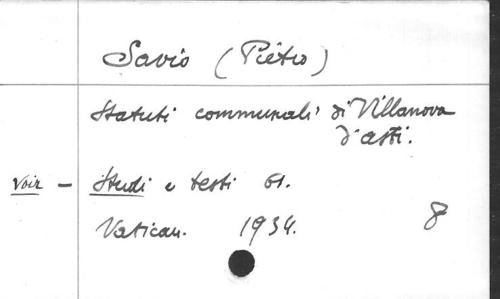 Savio (Pietro)
Statuti communali di Villanova
d'asti.
Voir - Studi e testi 61.
Vatican. 1934. 8